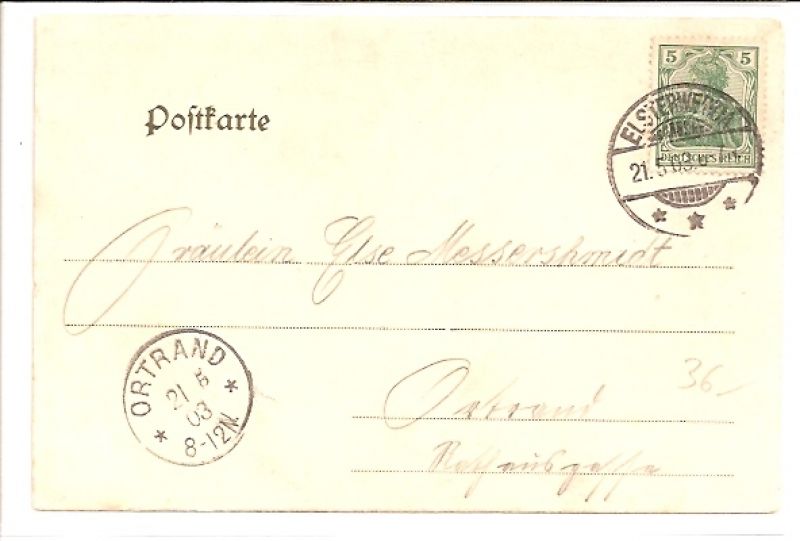 5 5
DEUTSCHES REICH
ELSTERWERDA
21. 5. 03.
Postkarte
Fräulein Else Messerschmidt
ORTRAND
21 5
03
8-12N.
36-
Ortrand
Rathausgasse